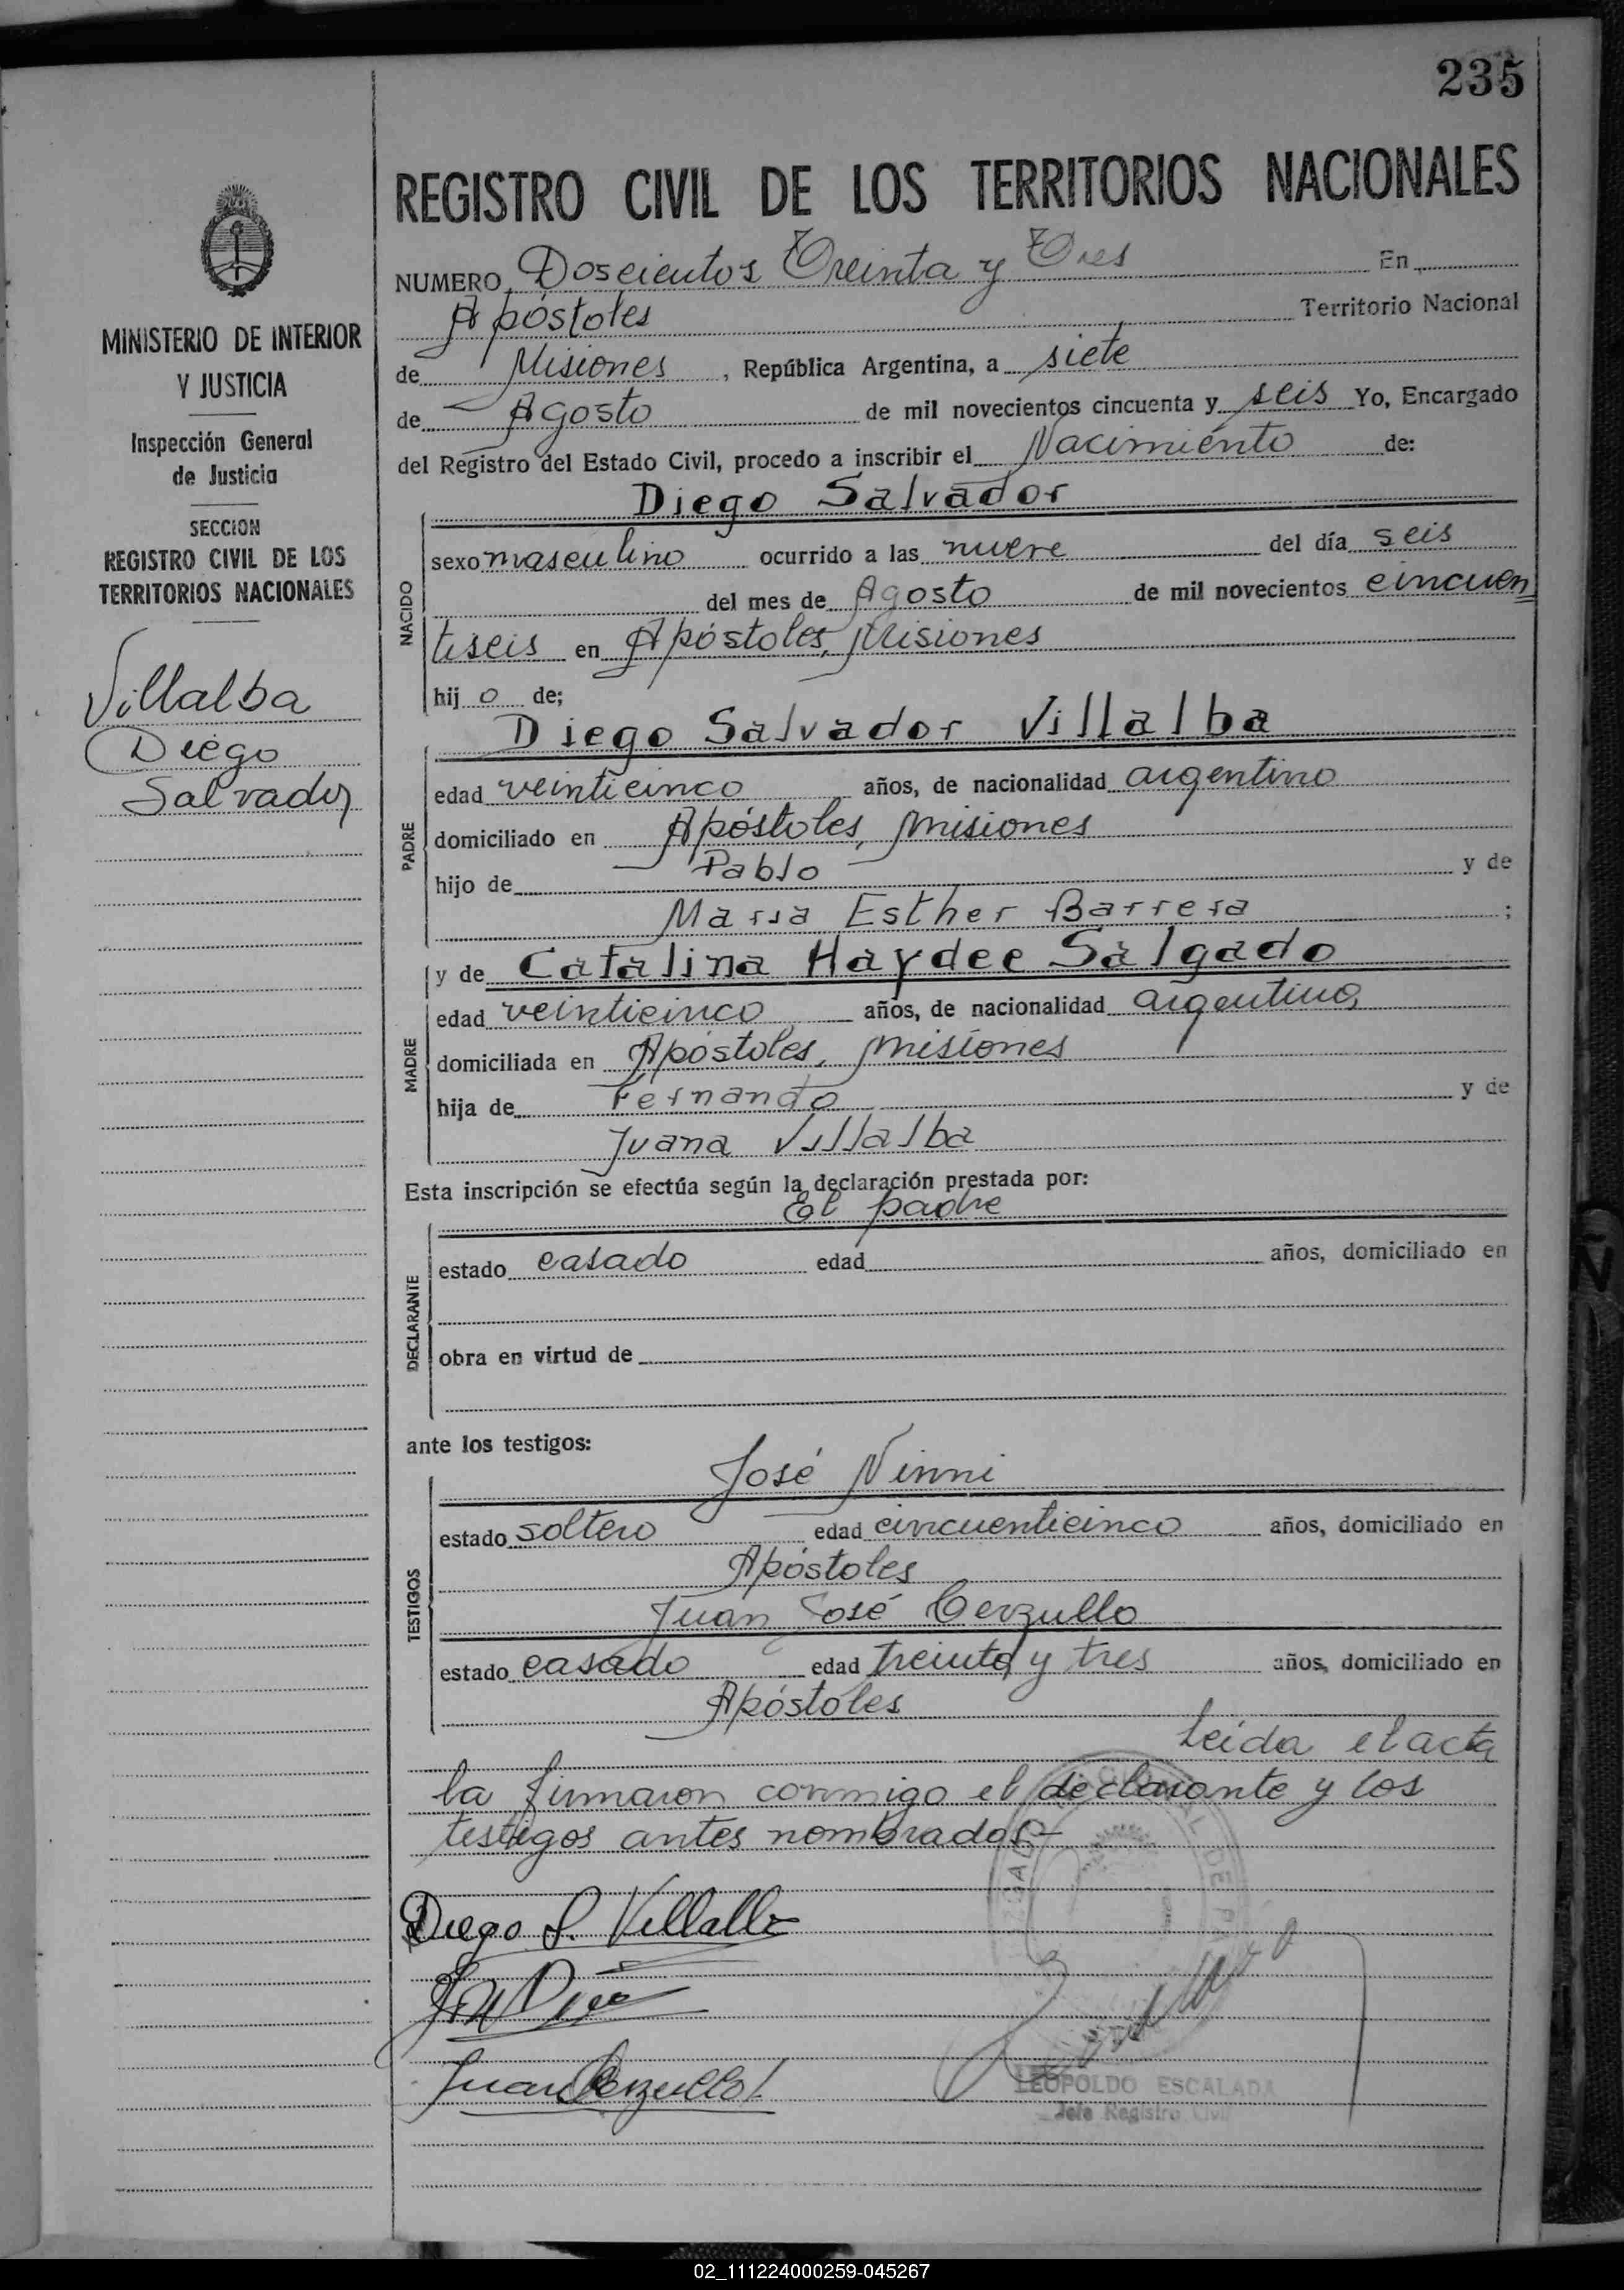 235
REGISTRO CIVIL DE LOS TERRITORIOS NACIONALES
NUMERO Doscientos Treinta y Tres En
Apóstoles Territorio Nacional
de Misiones, República Argentina, a siete
de Agosto de mil novecientos cincuenta y seis Yo, Encargado
del Registro del Estado Civil, procedo a inscribir el Nacimiento de:
MINISTERIO DE INTERIOR
Y JUSTICIA
Inspección General
de Justicia
SECCION
REGISTRO CIVIL DE LOS
TERRITORIOS NACIONALES
Villalba
Diego
Salvador
NACIDO
Diego Salvador
sexo masculino ocurrido a las nueve del día seis
del mes de Agosto de mil novecientos cincuen
tiseis en Apóstoles, Misiones
hij o de;
PADRE
Diego Salvador Villalba
edad veinticinco años, de nacionalidad argentino
domiciliado en Apóstoles, Misiones
hijo de Pablo y de
Maria Esther Barrera ;
MADRE
y de Catalina Haydee Salgado
edad veinticinco años, de nacionalidad argentina
domiciliada en Apóstoles, Misiones
hija de Fernando y de
Juana Villalba
Esta inscripción se efectúa según la declaración prestada por:
DECLARANTE
El padre
estado casado edad años, domiciliado en
obra en virtud de
ante los testigos:
TESTIGOS
José Ninni
estado soltero edad cincuenticinco años, domiciliado en
Apóstoles
Juan José Cerzullo
estado casado edad treinta y tres años, domiciliado en
Apóstoles
Leida el acta
la firmaron conmigo el declarante y los
testigos antes nombrados.-
Diego S. Villalba
Juan Cerzullo
LEOPOLDO ESCALADA
Jefe Registro Civil
02_111224000259-045267